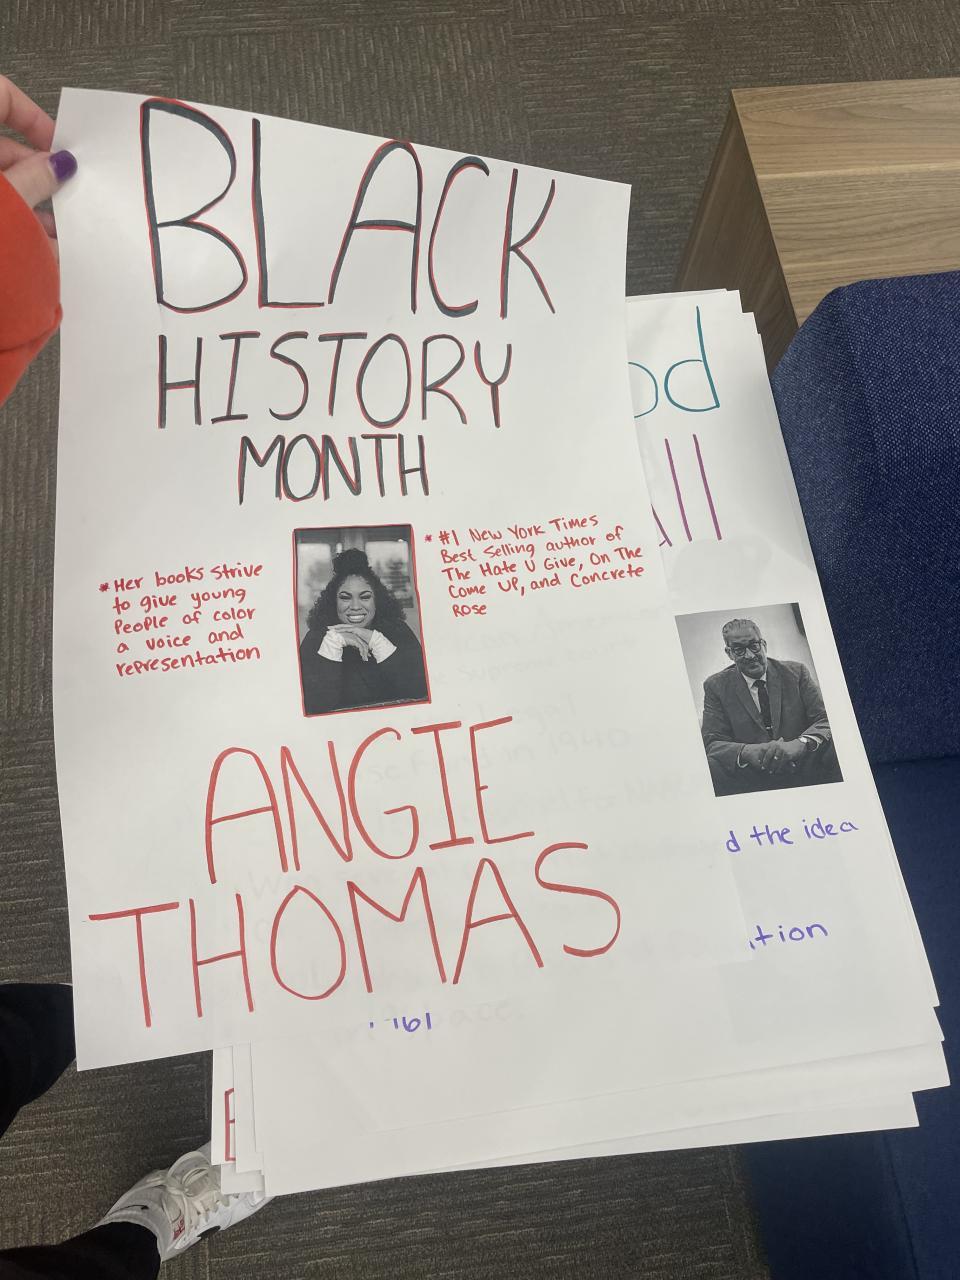 BLACK
HISTORY
MONTH
* Her books strive
to give young
People of color
a voice and
representation
* #1 New York Times
Best Selling author of
The Hate U Give, On The
Come UP, and Concrete
Rose
ANGIE
THOMAS
od
all
d the idea
ation